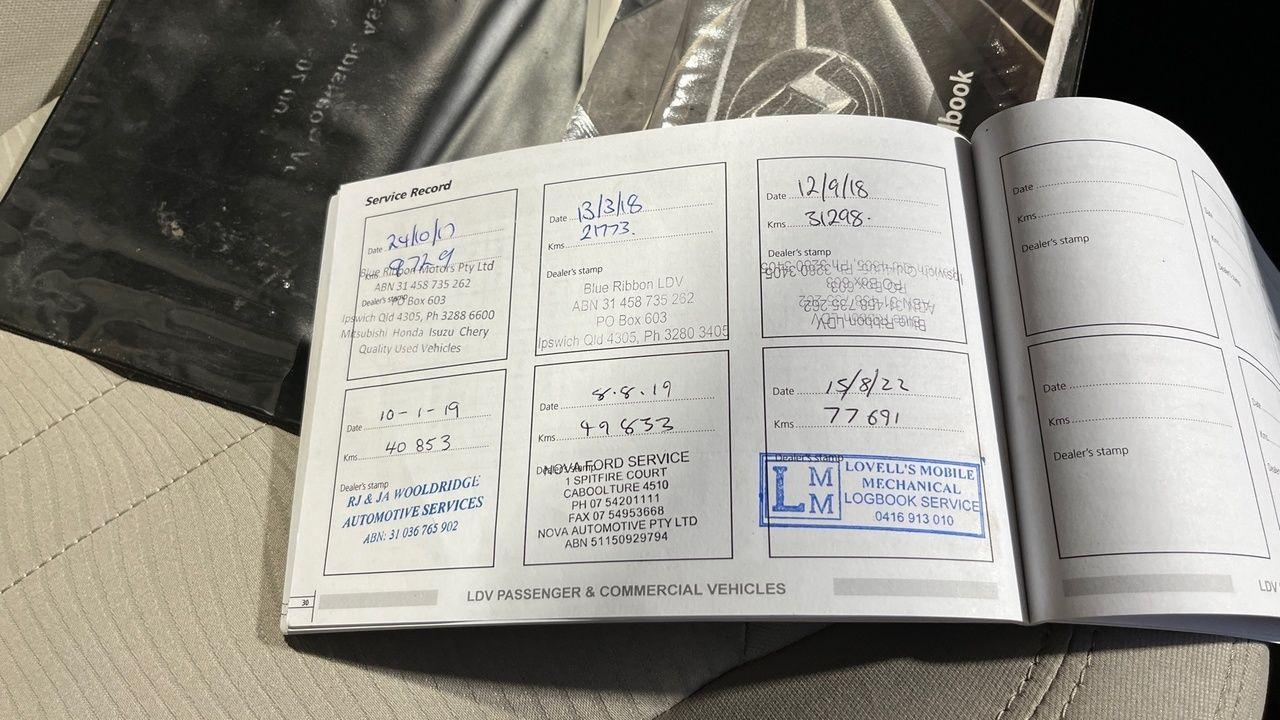 lbook
Service Record
Date 24/10/17
Kms 9729
Dealer's stamp
Blue Ribbon Motors Pty Ltd
ABN 31 458 735 262
PO Box 603
Ipswich Qld 4305, Ph 3288 6600
Mitsubishi Honda Isuzu Chery
Quality Used Vehicles
Date 13/3/18
Kms 21773.
Dealer's stamp
Blue Ribbon LDV
ABN 31 458 735 262
PO Box 603
Ipswich Qld 4305, Ph 3280 3405
Date 12/9/18
Kms 31298.
Dealer's stamp
Blue Ribbon LDV
ABN 31 458 735 262
PO Box 603
Ipswich Qld 4305, Ph 3280 3405
Date 10-1-19
Kms 40 853
Dealer's stamp
RJ & JA WOOLDRIDGE
AUTOMOTIVE SERVICES
ABN: 31 036 765 902
Date 8.8.19
Kms 49833
Dealer's stamp
NOVA FORD SERVICE
1 SPITFIRE COURT
CABOOLTURE 4510
PH 07 54201111
FAX 07 54953668
NOVA AUTOMOTIVE PTY LTD
ABN 51150929794
Date 15/8/22
Kms 77691
Dealer's stamp
LMM
LOVELL'S MOBILE
MECHANICAL
LOGBOOK SERVICE
0416 913 010
30
LDV PASSENGER & COMMERCIAL VEHICLES
Date
Kms
Dealer's stamp
Date
Kms
Dealer's stamp
LDV